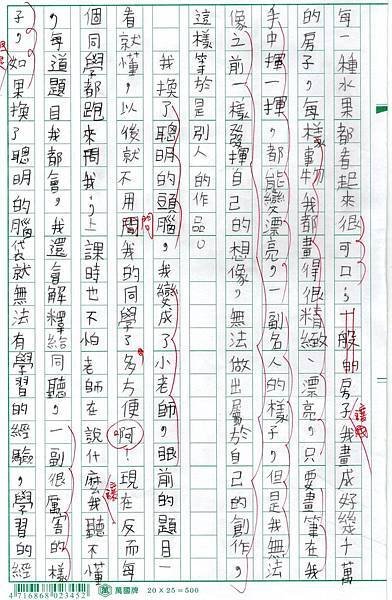 每一種水果都看起來很可口；一般的房子我畫成好幾千萬
的房子，每樣事物我都畫得很精緻、漂亮，只要畫筆在我
手中揮一揮，都能變漂亮，一副名人的樣子，但是我無法
像之前一樣發揮自己的想像，無法做出屬於自己的創作，
這樣等於是別人的作品。
我換了聰明的頭腦，我變成了小老師，眼前的題目一
看就懂，以後就不用問我的同學了多方便啊！現在反而每
個同學都跑來問我，上課時也不怕老師在說什麼我聽不懂
，每道題目我都會，我還會解釋給同聽，一副很厲害的樣
子，如果換了聰明的腦袋就無法有學習的經驗，學習的經
問
4716868023452
萬國牌 20 X 25=500